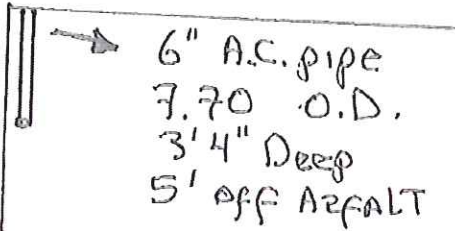 6" A.C. pipe
7.70 O.D.
3'4" Deep
5' off AzFALT